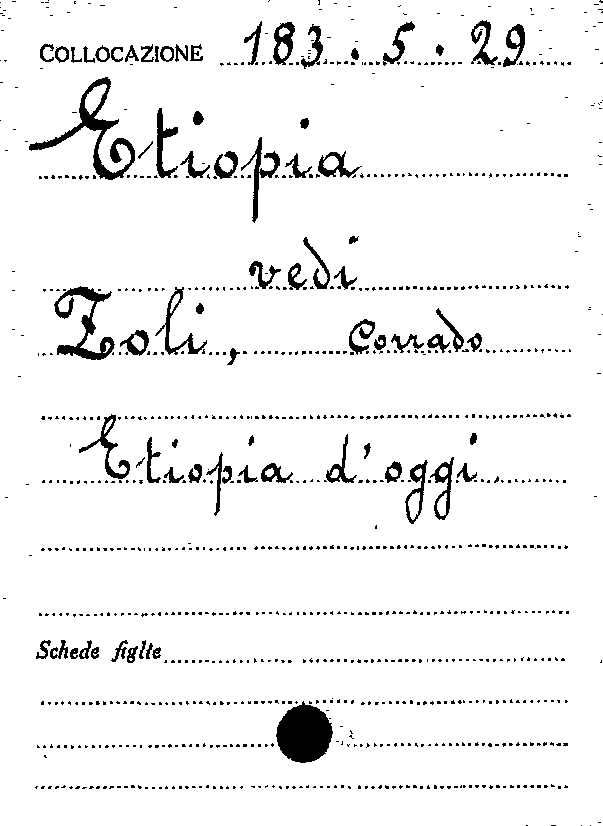 COLLOCAZIONE 183.5.29
Etiopia
vedi
Zoli, Corrado
Etiopia d'oggi
Schede figlie